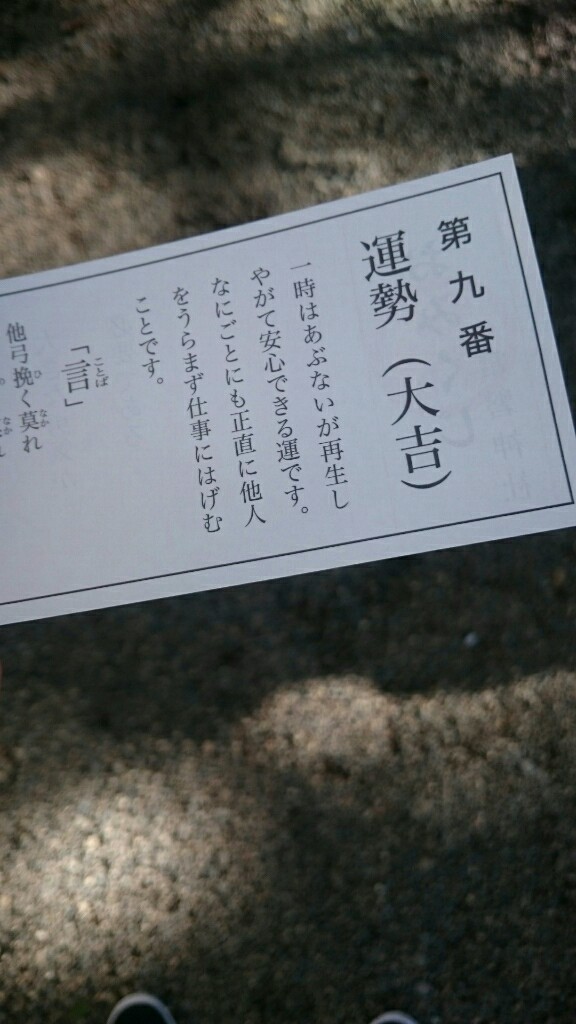 第九番
運勢（大吉）
一時はあぶないが再生し
やがて安心できる運です。
なにごとにも正直に他人
をうらまず仕事にはげむ
ことです。
「言」
ことば
他弓挽く莫れ
ひ
なか